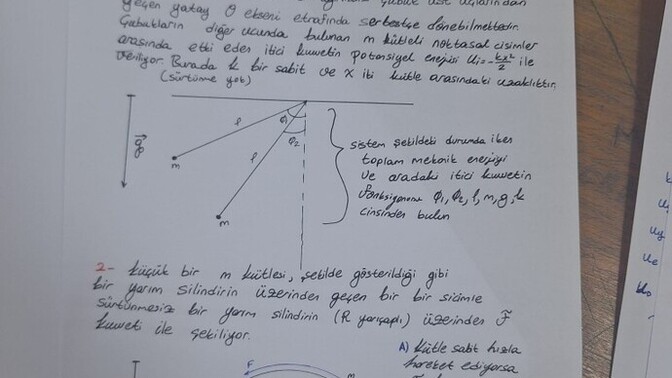 geçen yatay O ekseni etrafında serbestçe dönebilmektedir.
Çubukların diğer ucunda bulunan m kütleli noktasal cisimler
arasında etki eden itici kuvvetin potansiyel enerjisi Ui=-kx²/2 ile
veriliyor. Burada k bir sabit ve x iki kütle arasındaki uzaklıktır.
(sürtünme yok)
g
ϕ1
ϕ2
l
l
m
m
sistem şekildeki durumda iken
toplam mekanik enerjiyi
ve aradaki itici kuvvetin
fonksiyonunu ϕ1, ϕ2, l, m, g, k
cinsinden bulun
2- küçük bir m kütlesi, şekilde gösterildiği gibi
bir yarım silindirin üzerinden geçen bir bir sicimle
sürtünmesiz bir yarım silindirin (R yarıçaplı) üzerinden F
kuvveti ile çekiliyor.
A) Kütle sabit hızla
hareket ediyorsa
F
m